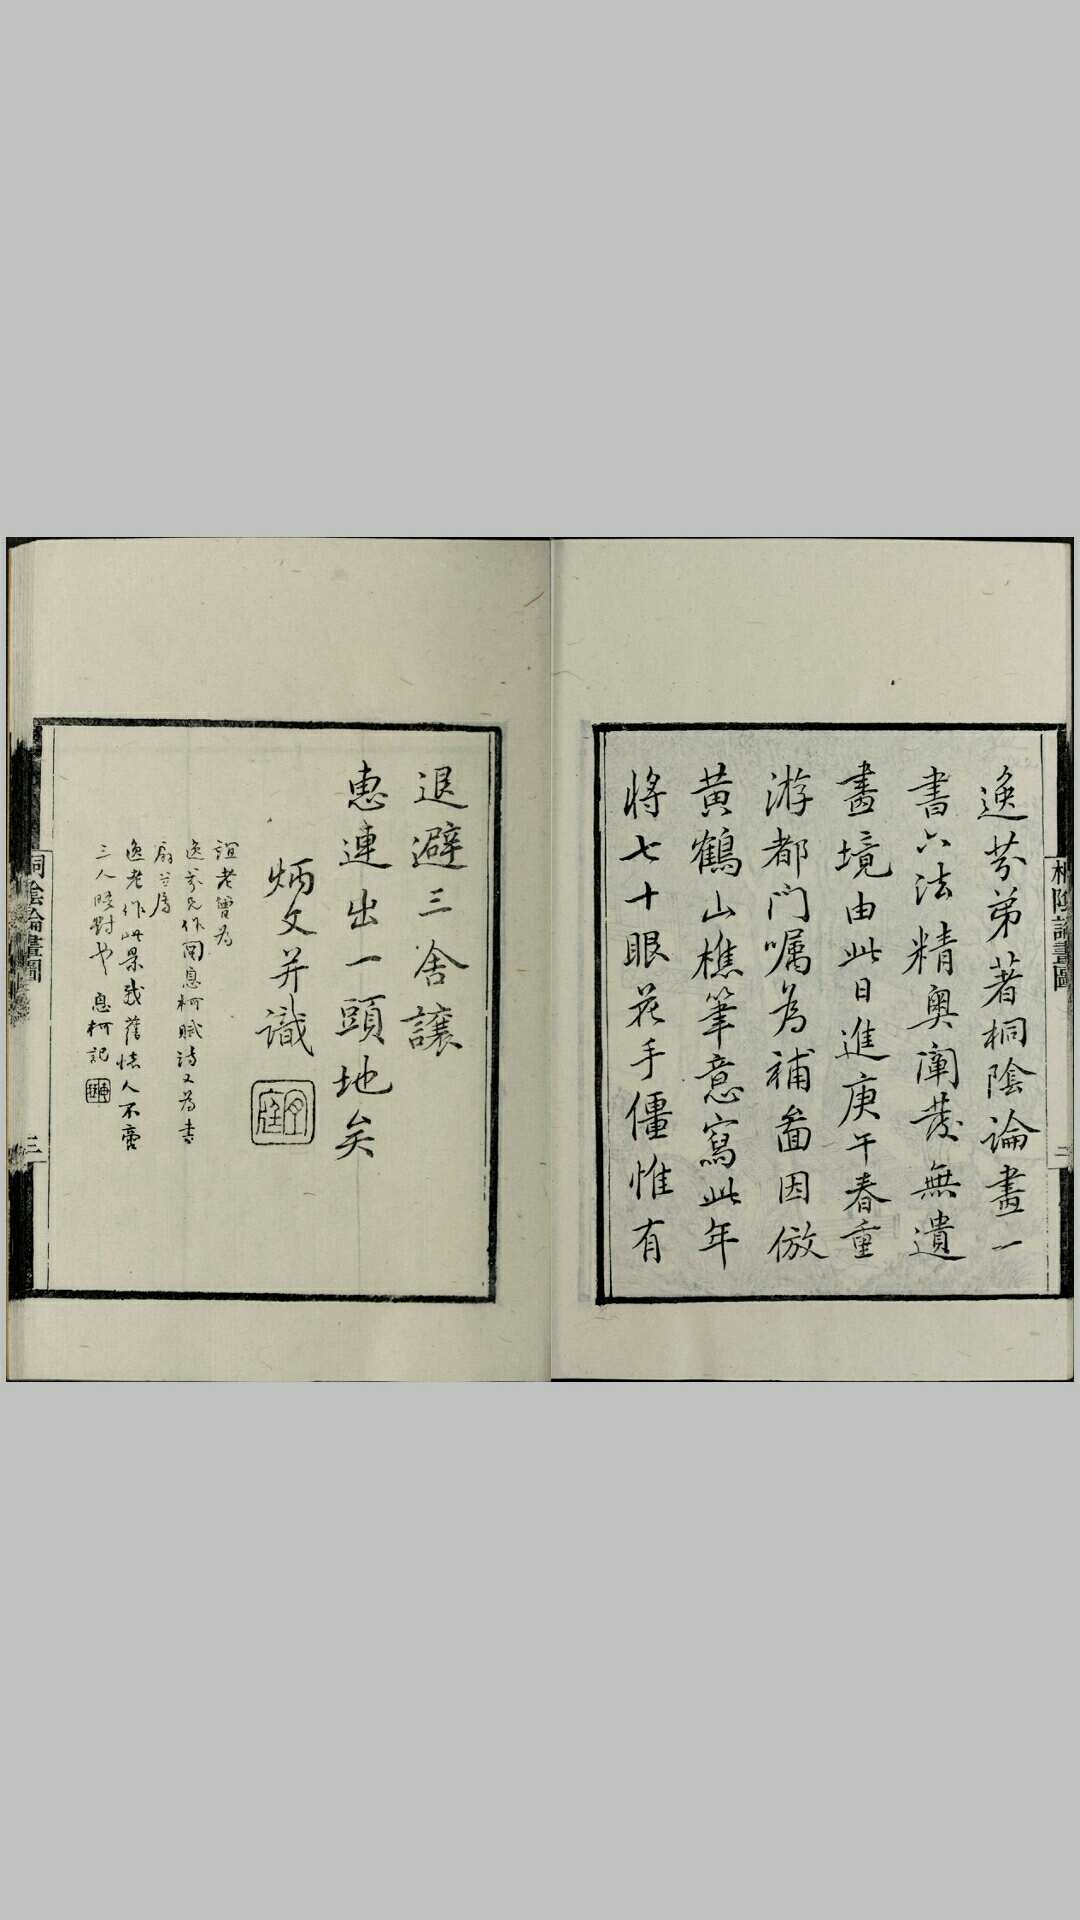 逸芬弟著桐陰論畫一
書六法精奧闡發無遺
畫境由此日進庚午春重
游都门嘱為補啚因倣
黄鶴山樵筆意寫此年
將七十眼花手僵惟有
桐陰論畫圖
二
退避三舍讓
惠連出一頭地矣
炳文并識
誼老曾為
逸芬兄作圖息柯賦詩又為書
扇
逸老作此景我舊懷人不啻
三人晤對也 息柯記
桐陰論畫圖
三